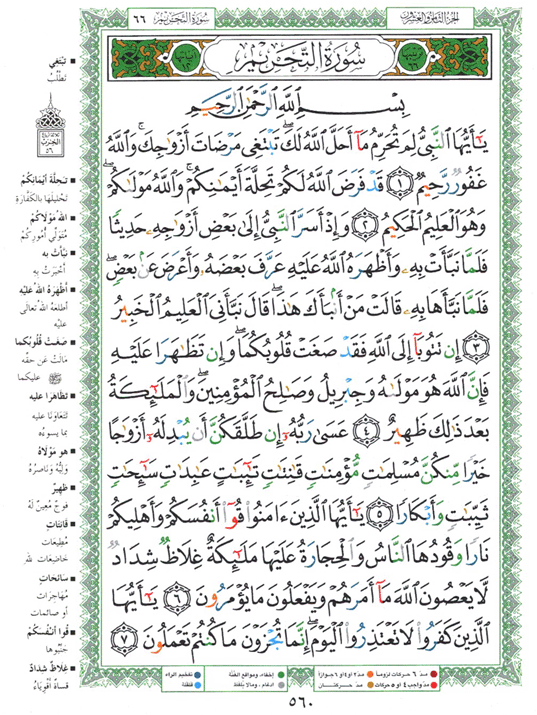 الجزء الثامن والعشرون
سورة التحريم ٦٦
سُورَةُ التَّحْرِيمِ
بِسْمِ اللَّهِ الرَّحْمَٰنِ الرَّحِيمِ
يَٰٓأَيُّهَا ٱلنَّبِىُّ لِمَ تُحَرِّمُ مَآ أَحَلَّ ٱللَّهُ لَكَ ۖ تَبْتَغِى مَرْضَاتَ أَزْوَٰجِكَ ۚ وَٱللَّهُ
غَفُورٌ رَّحِيمٌ ١ قَدْ فَرَضَ ٱللَّهُ لَكُمْ تَحِلَّةَ أَيْمَٰنِكُمْ ۚ وَٱللَّهُ مَوْلَىٰكُمْ ۖ
وَهُوَ ٱلْعَلِيمُ ٱلْحَكِيمُ ٢ وَإِذْ أَسَرَّ ٱلنَّبِىُّ إِلَىٰ بَعْضِ أَزْوَٰجِهِۦ حَدِيثًا
فَلَمَّا نَبَّأَتْ بِهِۦ وَأَظْهَرَهُ ٱللَّهُ عَلَيْهِ عَرَّفَ بَعْضَهُۥ وَأَعْرَضَ عَنۢ بَعْضٍ ۖ
فَلَمَّا نَبَّأَهَا بِهِۦ قَالَتْ مَنْ أَنۢبَأَكَ هَٰذَا ۖ قَالَ نَبَّأَنِىَ ٱلْعَلِيمُ ٱلْخَبِيرُ
٣ إِن تَتُوبَآ إِلَى ٱللَّهِ فَقَدْ صَغَتْ قُلُوبُكُمَا ۖ وَإِن تَظَٰهَرَا عَلَيْهِ
فَإِنَّ ٱللَّهَ هُوَ مَوْلَىٰهُ وَجِبْرِيلُ وَصَٰلِحُ ٱلْمُؤْمِنِينَ ۖ وَٱلْمَلَٰٓئِكَةُ
بَعْدَ ذَٰلِكَ ظَهِيرٌ ٤ عَسَىٰ رَبُّهُۥٓ إِن طَلَّقَكُنَّ أَن يُبْدِلَهُۥٓ أَزْوَٰجًا
خَيْرًا مِّنكُنَّ مُسْلِمَٰتٍ مُّؤْمِنَٰتٍ قَٰنِتَٰتٍ تَٰٓئِبَٰتٍ عَٰبِدَٰتٍ سَٰٓئِحَٰتٍ
ثَيِّبَٰتٍ وَأَبْكَارًا ٥ يَٰٓأَيُّهَا ٱلَّذِينَ ءَامَنُوا۟ قُوٓا۟ أَنفُسَكُمْ وَأَهْلِيكُمْ
نَارًا وَقُودُهَا ٱلنَّاسُ وَٱلْحِجَارَةُ عَلَيْهَا مَلَٰٓئِكَةٌ غِلَاظٌ شِدَادٌ
لَّا يَعْصُونَ ٱللَّهَ مَآ أَمَرَهُمْ وَيَفْعَلُونَ مَا يُؤْمَرُونَ ٦ يَٰٓأَيُّهَا
ٱلَّذِينَ كَفَرُوا۟ لَا تَعْتَذِرُوا۟ ٱلْيَوْمَ ۖ إِنَّمَا تُجْزَوْنَ مَا كُنتُمْ تَعْمَلُونَ ٧
تَبْتَغِي
تَطْلُبُ
الحزب
٥٦
تَحِلَّةَ أَيْمَانِكُمْ
تَحْلِيلَهَا بِالكَفَّارَةِ
اللهُ مَوْلَاكُمْ
مُتَوَلِّي أُمُورِكُمْ
نَبَّأَتْ بِهِ
أَخْبَرَتْ بِهِ
أَظْهَرَهُ اللهُ عَلَيْهِ
أطلعه الله تعالى
عليه
صَغَتْ قُلُوبُكُمَا
مَالَتْ عَنْ حَقِّه
ﷺ عليكما
تَظَاهَرَا عليه
تتعاونا عليه
بما يسوءه
هو مَوْلَاهُ
وَلِيُّهُ وَنَاصِرُهُ
ظَهِيرٌ
فوجٌ مُعِينٌ لَهُ
قَانِتَاتٍ
مُطِيعَات
خاضِعات لله
سَائِحَاتٍ
مُهَاجِرَات
أو صائمات
قُوا أَنْفُسَكُمْ
جَنِّبُوها
غِلَاظٌ شِدَادٌ
قُسَاةٌ أَقْوِيَاءُ
مدّ ٦ حركات لزوماً مدّ ٢ أو ٤ أو ٦ جوازاً إخفاء، ومواقع الغُنَّة تفخيم الراء
مدّ واجب ٤ أو ٥ حركات مدّ حركتان إدغام، وما لا يُلفظ قلقلة
٥٦٠